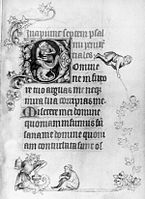 Incipiunt septem psal
mi peniten
tiales
Domine
ne in furo
re tuo arguas me neq3
in ira tua corripias me.
Miserere mei domine
quoniam infirmus su3
sana me domine quoni
am conturbata sunt os